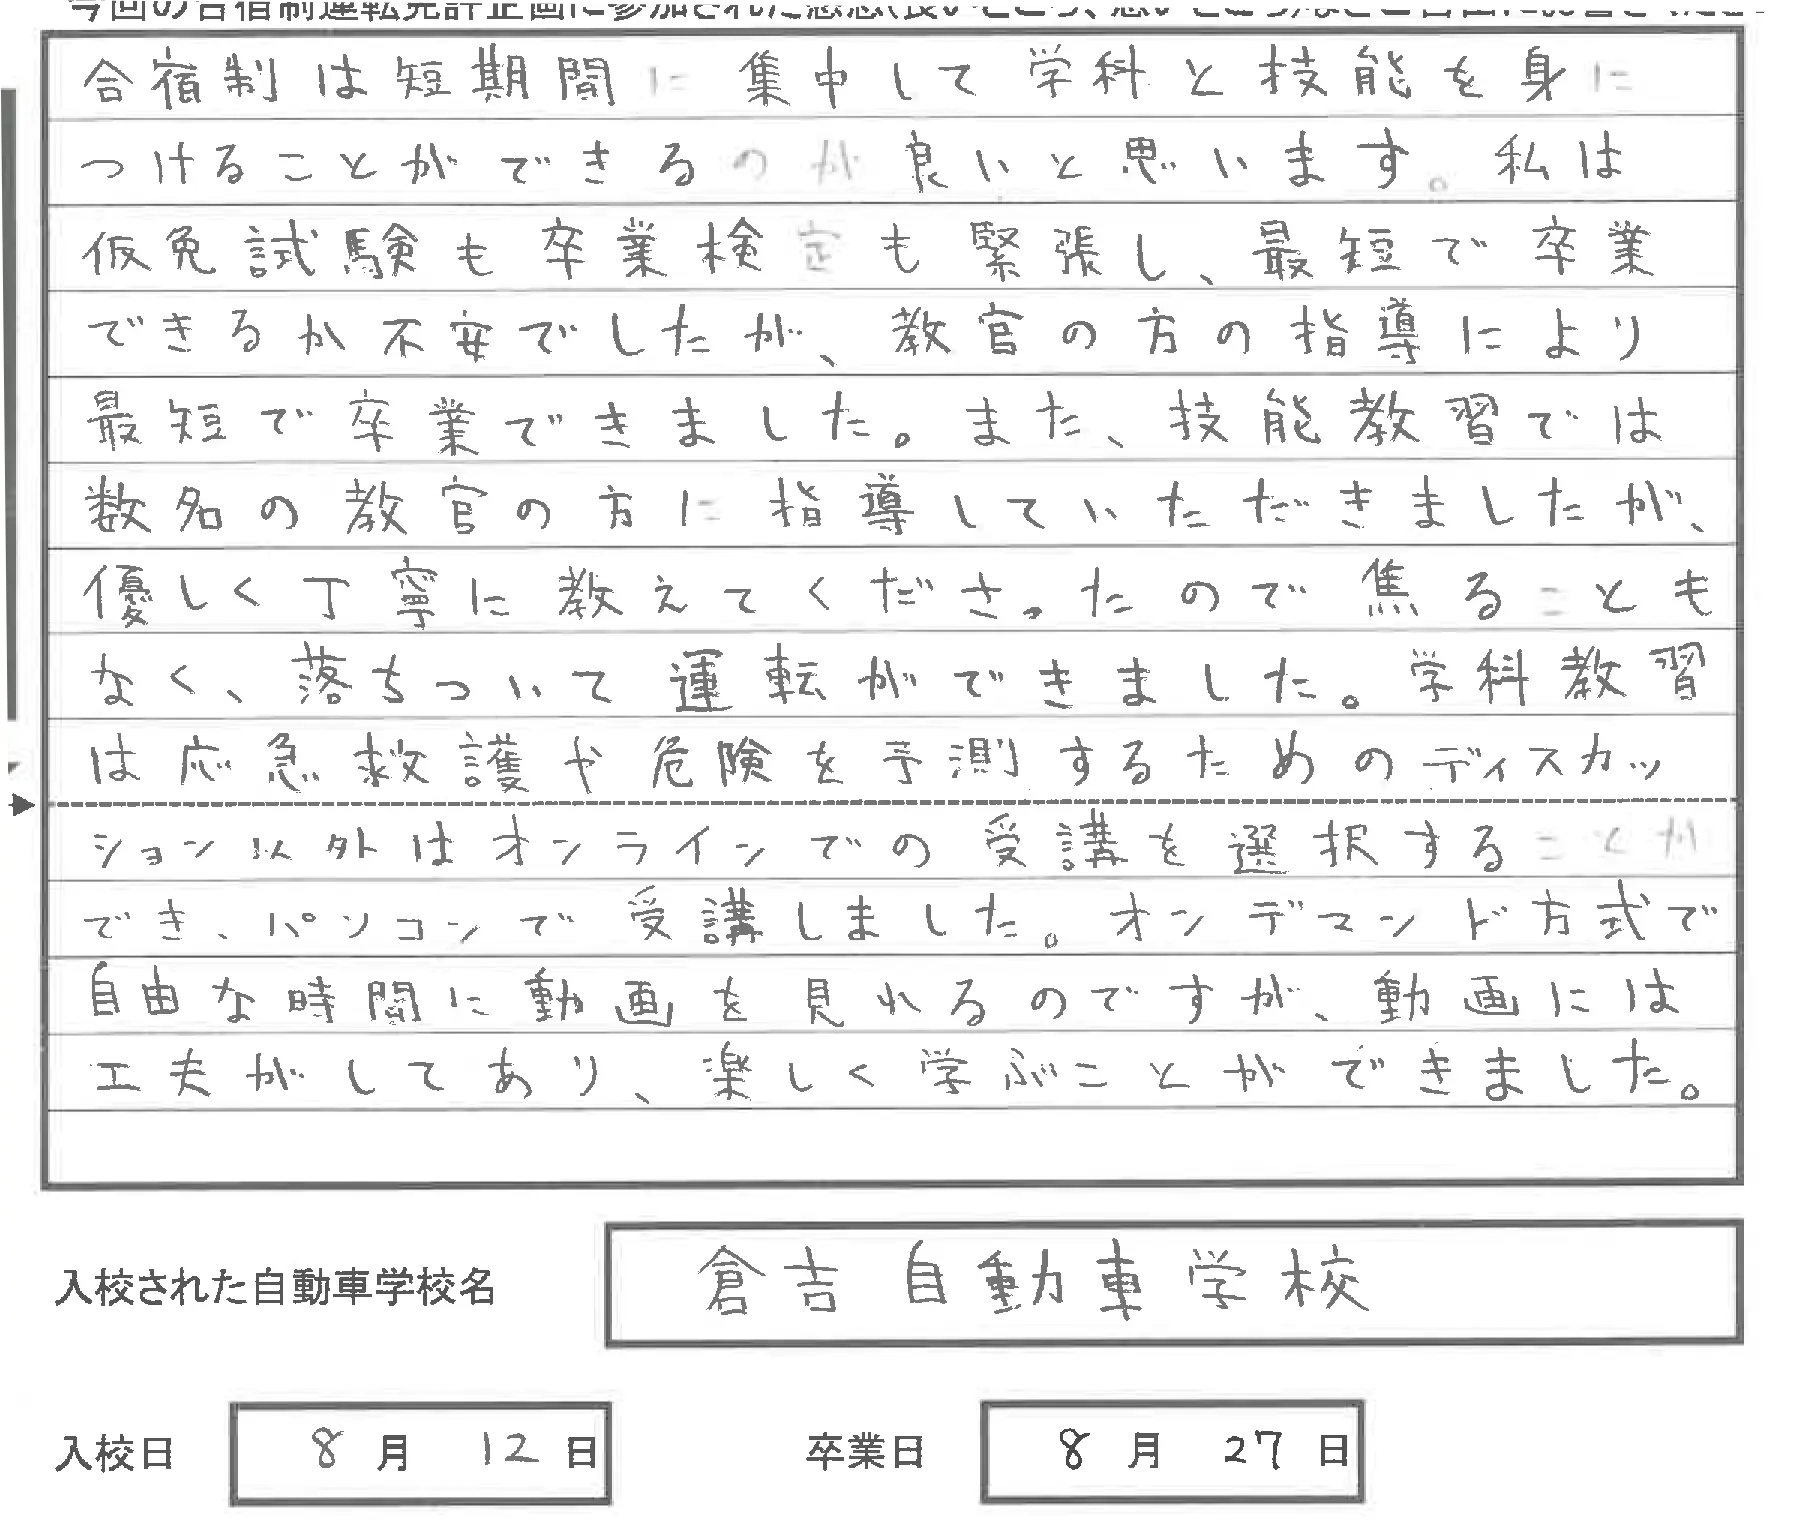 今回の合宿制運転免許企画に参加された感想(良いところ、悪いところ)などご自由に
合宿制は短期間に集中して学科と技能を身に
つけることができるのが良いと思います。私は
仮免試験も卒業検定も緊張し、最短で卒業
できるか不安でしたが、教官の方の指導により
最短で卒業できました。また、技能教習では
数名の教官の方に指導していただきましたが、
優しく丁寧に教えてくださったので焦ることも
なく、落ちついて運転ができました。学科教習
は応急救護や危険を予測するためのディスカッ
ション以外はオンラインでの受講を選択することが
でき、パソコンで受講しました。オンデマンド方式で
自由な時間に動画を見れるのですが、動画には
工夫がしてあり、楽しく学ぶことができました。
入校された自動車学校名 倉吉自動車学校
入校日 8月 12日 卒業日 8月 27日